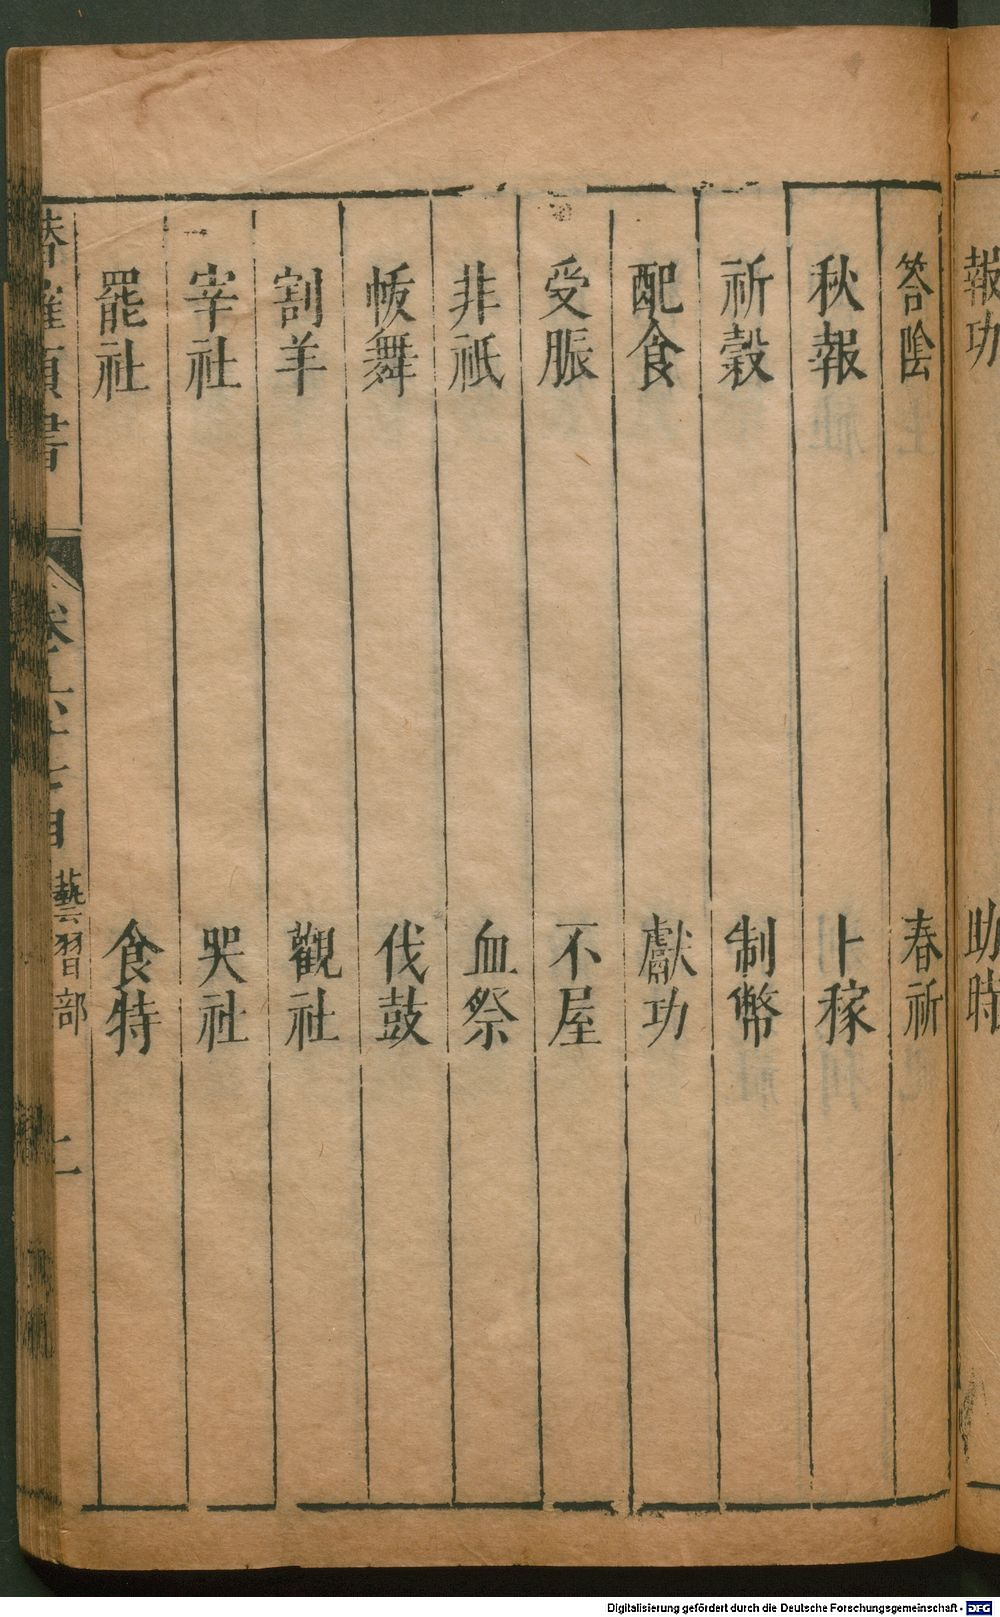 報功　助時
答陰　春祈
秋報　卜稼
祈穀　制幣
配食　獻功
受脤　不屋
非祇　血祭
帗舞　伐鼓
割羊　觀社
宰社　哭社
罷社　食特
類書　卷六十七目　藝習部　二
Digitalisierung gefördert durch die Deutsche Forschungsgemeinschaft - DFG